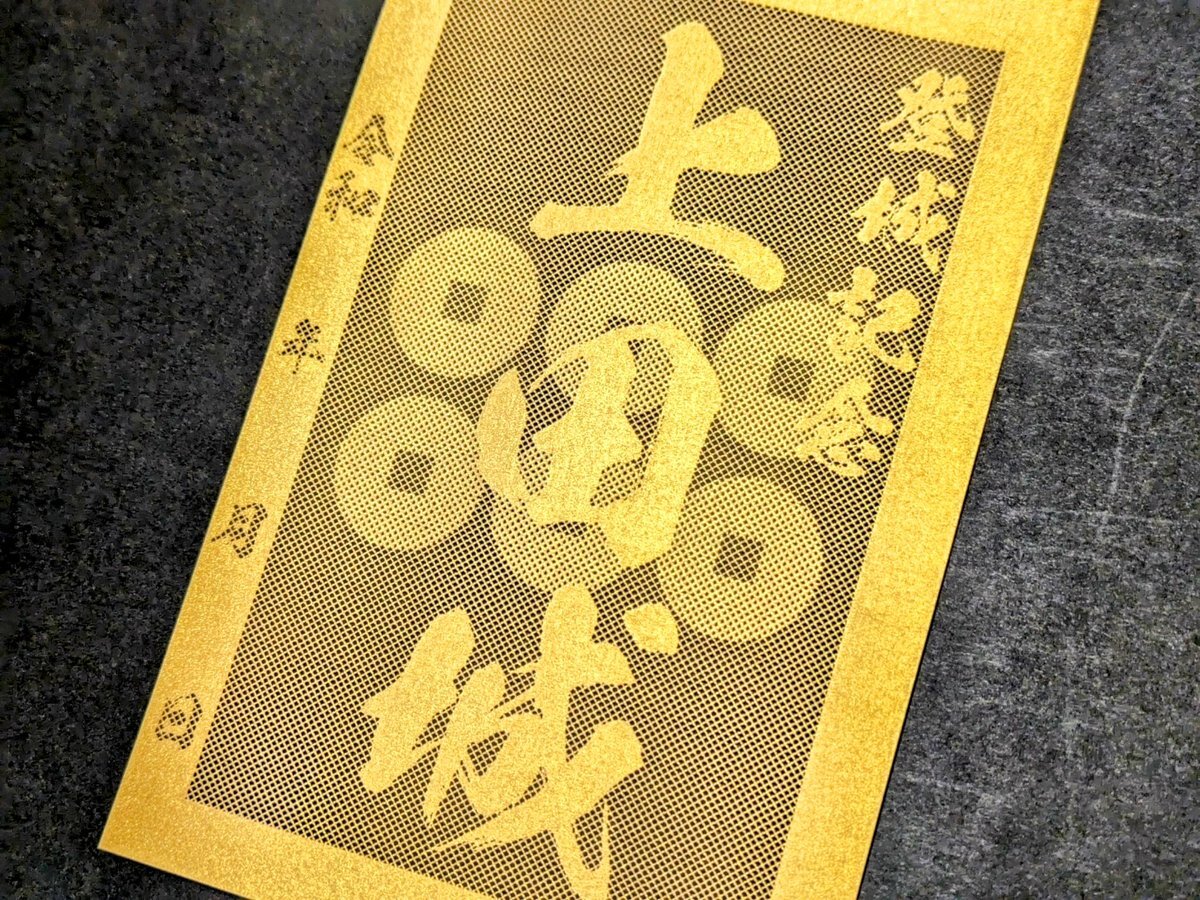 登城記念
上田城
令和 年 月 日